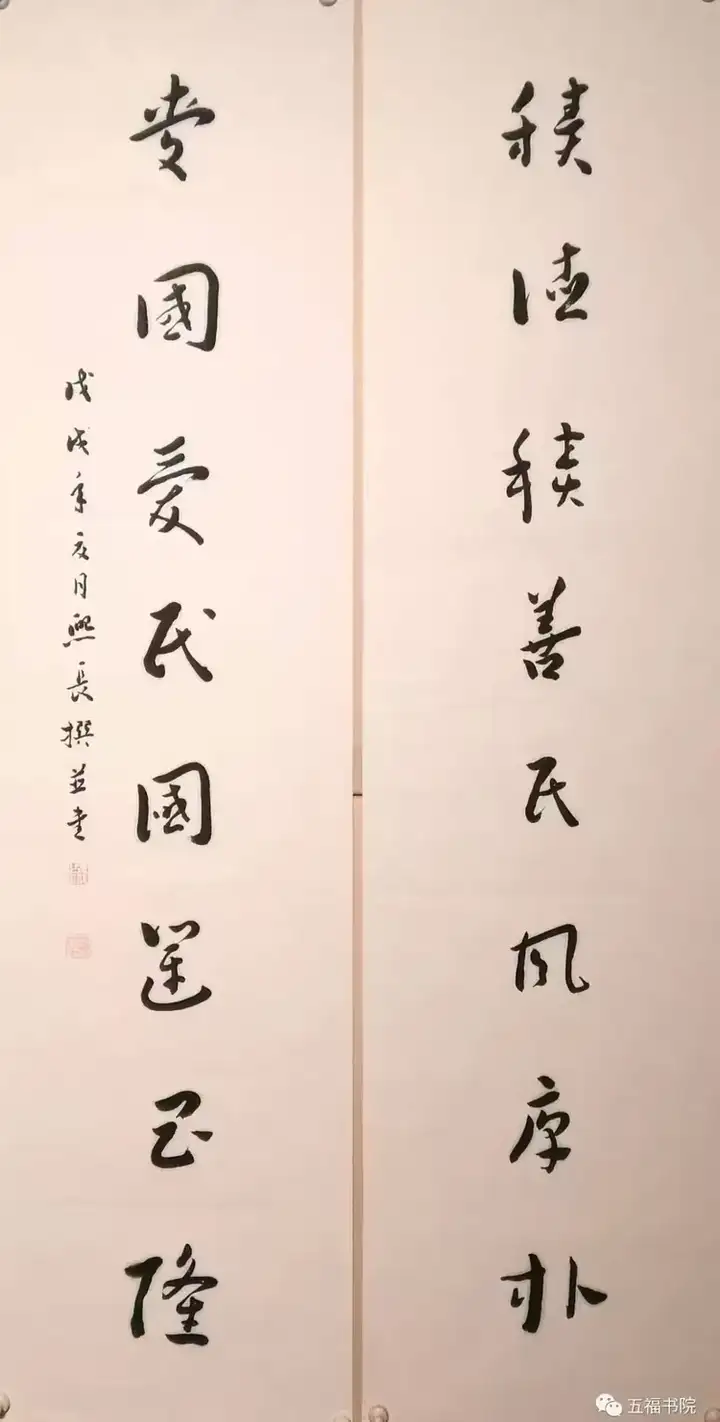 積德積善民風厚朴
愛國愛民國運昌隆
戊戌年亥月熙長撰並書
五福书院